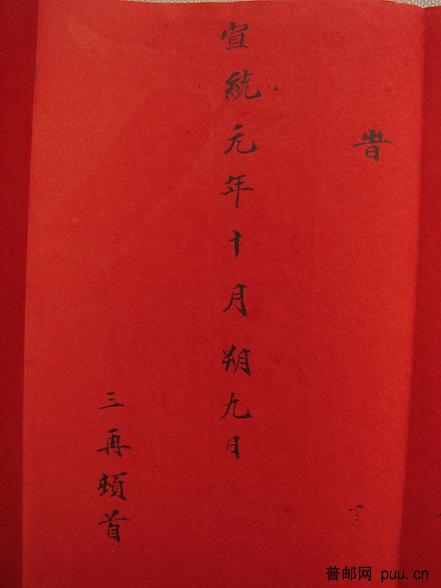 宣統元年十月朔九日
三再頓首
普邮网 puu.cn